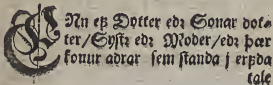 ENn eß Dotter edꝛ Sonar dote⸗
ter/Syſtꝛ edꝛ Moder/edꝛ þær
konur adrar ſem ſtanda j erffda
tale